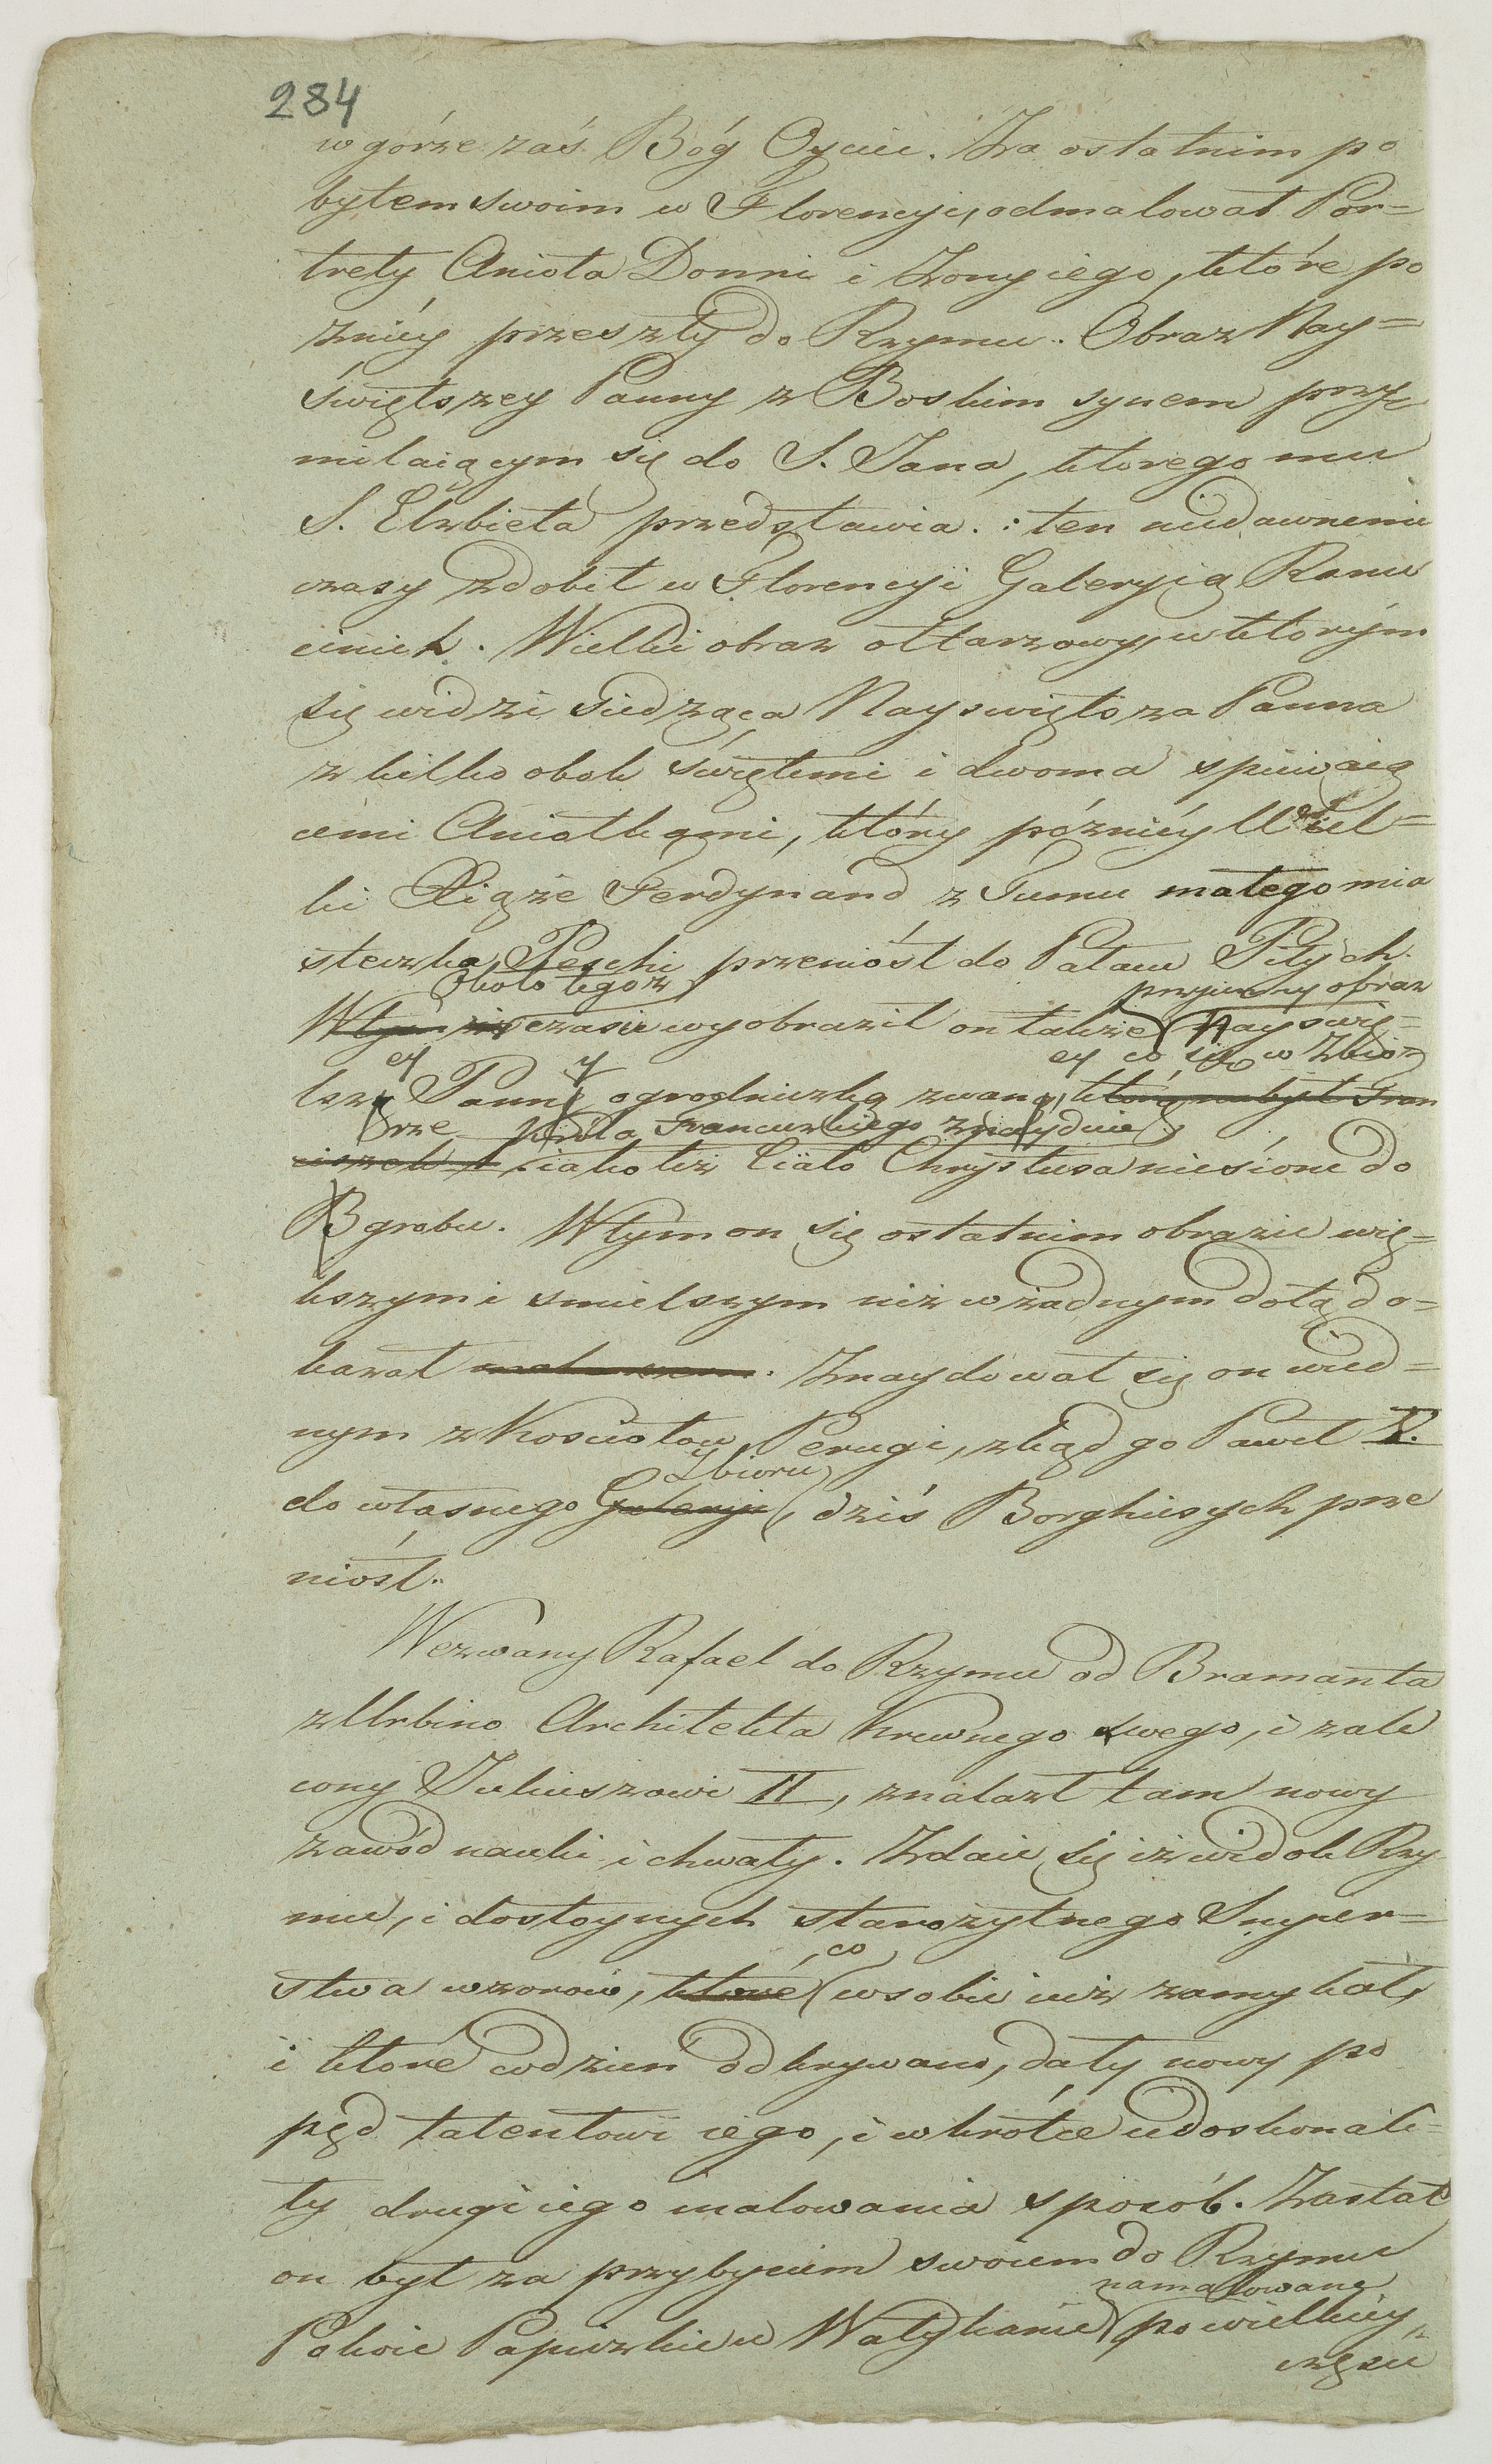 284
w górze zaś Bóg Oyciec. Za ostatnim po
bytem swoim w Florencyi, odmalował Por=
trety Anioła Donni i Żony iego, które po
zniéy przeszły do Rzymu. Obraz Nay=
świętszey Panny z Boskim synem przy
milaiącym się do S. Jana, ktorego mu
S. Elzbieta przedstawia. : ten niedawnemi
czasy zdobił w Florencyi Galeryią Renu
cinich. Wielki obraz ołtarzowy, w którym
się widzi siedząca Nayswiętsza Panna
z kilko obok świętemi i dwoma spiewaią
cemi Aniołkami, który pózniéy Wiel=
ki Xiąże Ferdynand z Tumu małego mia
steczka Peschi przeniósł do Pałacu Pitych.
Około tegoż
przyiemny obraz
W tym iż czasie wyobraził on także Nayswię=
ey y ey co się w Zbio=
tszą Pannę ogrodniczką zwaną, którą nabył Fran
rze Króla Francuzkiego znayduie,
ciszek I. iako też Ciało Chrystusa niesione do
grobu. W tym on się ostatnim obrazie wię=
kszym i smielszym niż w żadnym dotąd o=
kazał. Znaydował się on w ied=
nym z Kosciołow Perugi, zkąd go Paweł V.
Zbioru
do własnego Galeryi, dziś Borghiesych prze
niósł.
Wezwany Rafael do Rzymu od Bramanta
z Urbino Architekta Krewnego swego, i zale
cony Juliuszowi II, znalazł tam nowy
zawód nauki i chwały. Zdaie się iż widok Rzy
mu, i dostoynych starożytnego Snycer=
co
stwa wzorów, które w sobie iuż zamykał,
i które codzien odkrywano, dały nowy po
pęd talentowi iego, i wkrótce udoskonali=
ły drugi iego malowania sposób. Zastał
on był za przybyciem swoiem do Rzymu
namalowane
Pokoie Papiezkie w Watykanie po wielkiéy
częsci